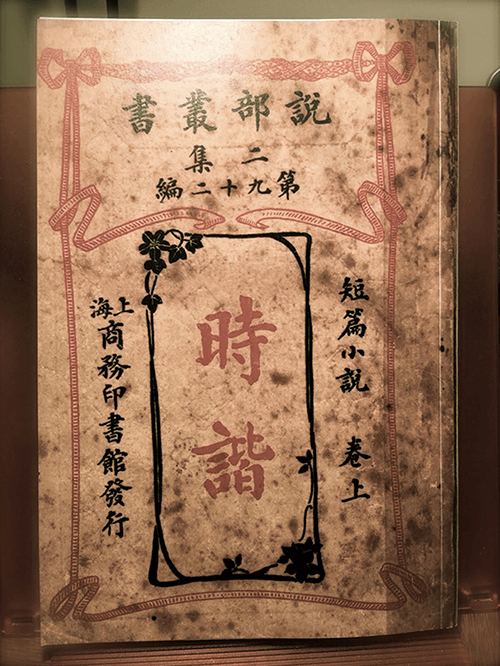 說部叢書
二集
第九十二編
短篇小說 卷上
時諧
上海商務印書館發行